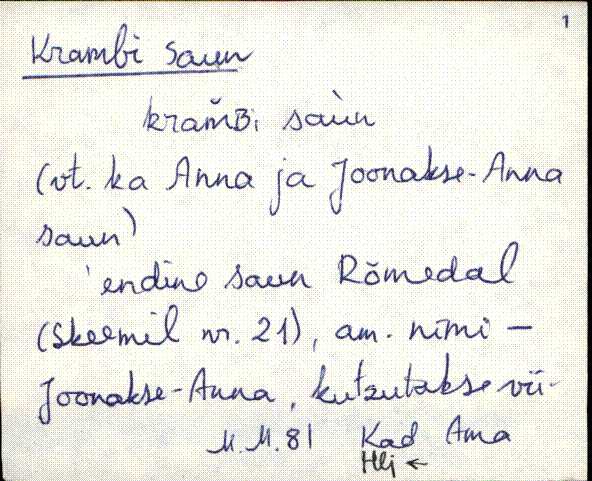 1
Krambi saun
kram̆Bi saùn
(vt. ka Anna ja Joonakse-Anna
saun)
'endine saun Rõmedal
(Skeemil nr. 21), am. nimi –
Joonakse-Anna, kutsutakse vii-
M.M. 81 Kad Ama
Hlj ←